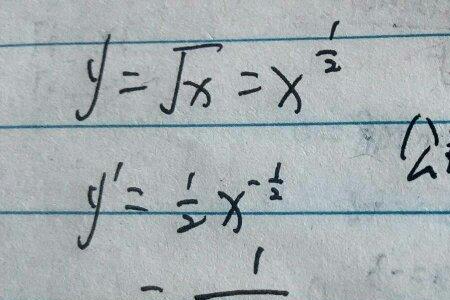 y = √x = x^{1/2}
y' = 1/2 x^{-1/2}
= 1